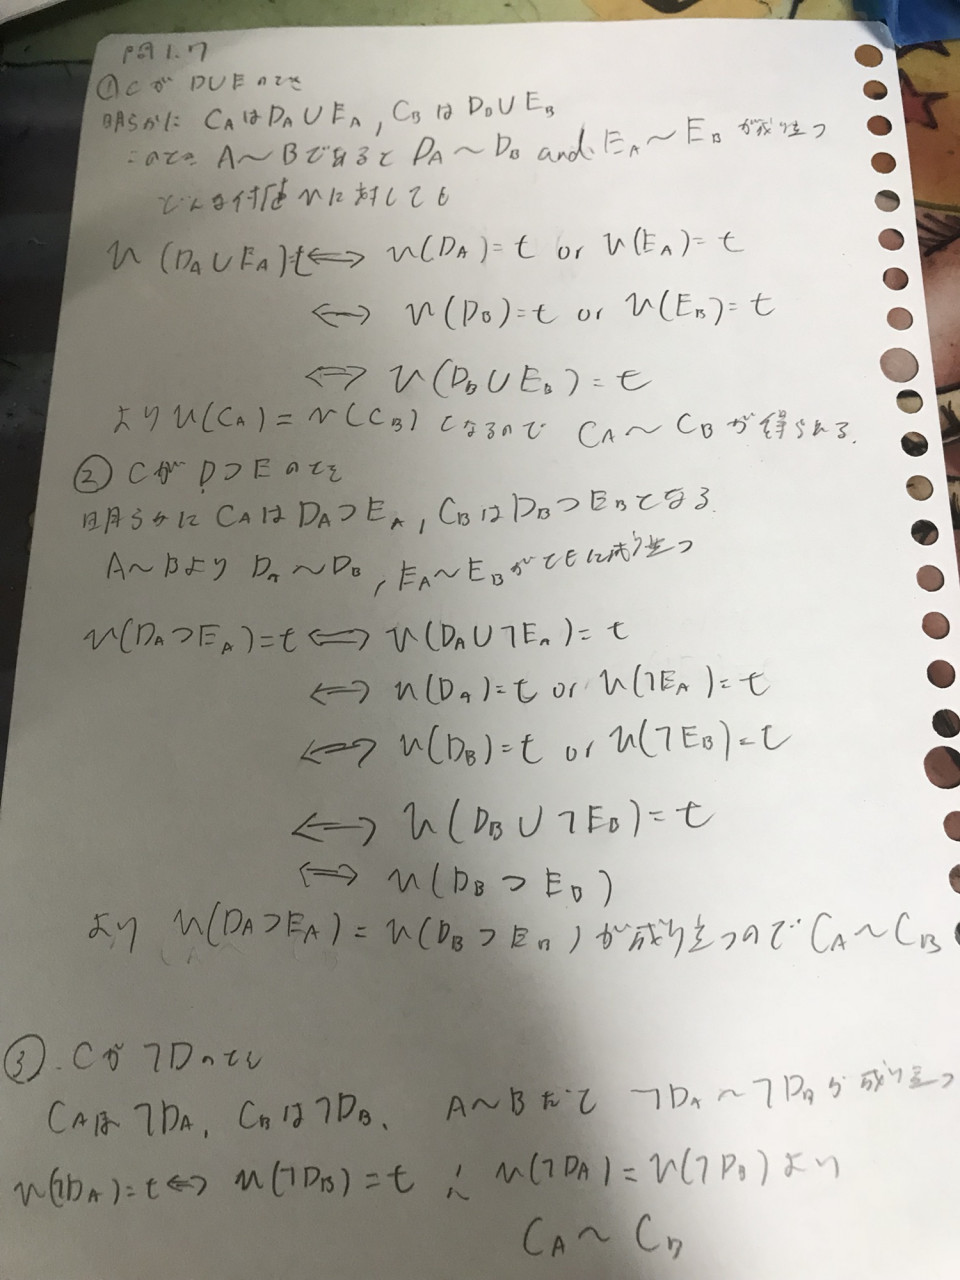 問1.7
① Cが D∪E のとき
明らかに C_A は D_A∪E_A , C_B は D_B∪E_B
このとき A～Bであると D_A～D_B and E_A～E_B が成り立つ
どんな付値 v に対しても
v(D_A∪E_A)=t ⟺ v(D_A)=t or v(E_A)=t
⟺ v(D_B)=t or v(E_B)=t
⟺ v(D_B∪E_B)=t
より v(C_A)=v(C_B) となるので C_A～C_B が得られる.
② Cが D⊃E のとき
明らかに C_A は D_A⊃E_A , C_B は D_B⊃E_B となる.
A～Bより D_A～D_B , E_A～E_B がともに成り立つ
v(D_A⊃E_A)=t ⟺ v(D_A∪¬E_A)=t
⟺ v(D_A)=t or v(¬E_A)=t
⟺ v(D_B)=t or v(¬E_B)=t
⟺ v(D_B∪¬E_B)=t
⟺ v(D_B⊃E_B)
より v(D_A⊃E_A)=v(D_B⊃E_B) が成り立つので C_A～C_B
③. Cが ¬D のとき
C_A は ¬D_A, C_B は ¬D_B. A～Bだと ¬D_A～¬D_B が成り立つ
v(¬D_A)=t⟺ v(¬D_B)=t ∴ v(¬D_A)=v(¬D_B)より
C_A～C_B